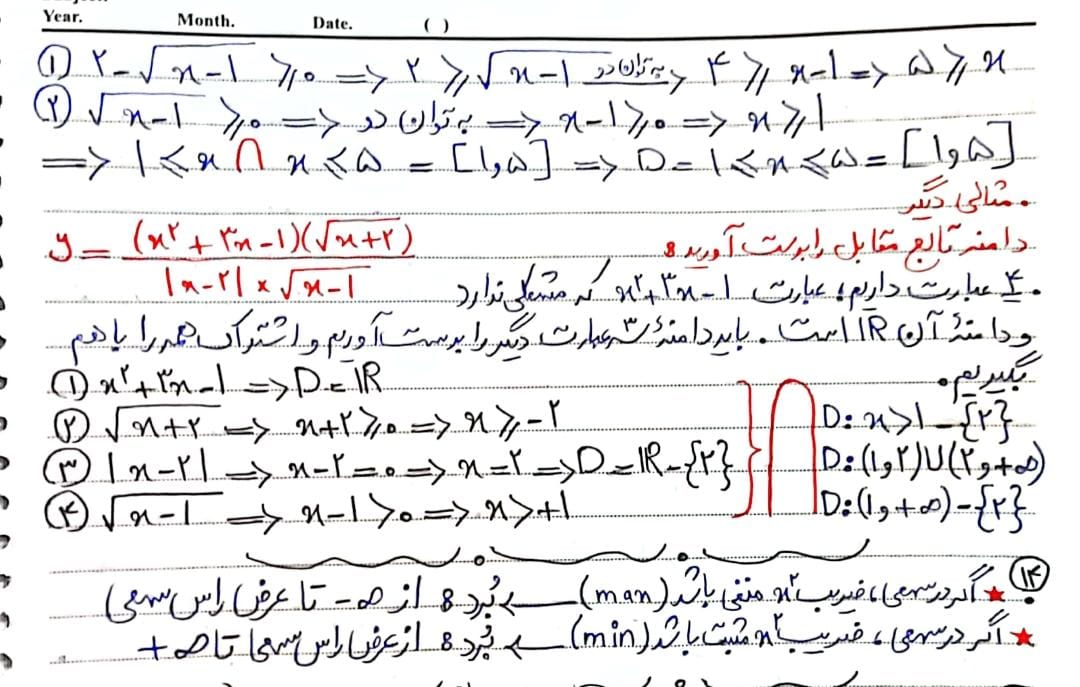 Year. Month. Date. ( )
① ۲-√x-1 ⩾ ۰ => ۲ ⩾ √x-1 به توان دو => ۴ ⩾ x-1 => ۵ ⩾ x
② √x-1 ⩾ ۰ => به توان دو => x-1 ⩾ ۰ => x ⩾ 1
=> 1 ⩽ x ∩ x ⩽ ۵ = [1,۵] => D = 1 ⩽ x ⩽ ۵ = [1,۵]
. مثالی دیگر
دامنه تابع مقابل را بدست آورید: y = (x²+۳x-1)(√x+۲) / |x-۲| × √x-1
. ۴ عبارت داریم؛ عبارت x²+۳x-1 که مشکلی ندارد
و دامنهٔ آن IR است. باید دامنهٔ ۳ عبارت دیگر را بدست آوریم و اشتراک همه را با هم
بگیریم.
① x²+۳x-1 => D = IR
② √x+۲ => x+۲ ⩾ ۰ => x ⩾ -۲
③ |x-۲| => x-۲=۰ => x=۲ => D = IR-{۲}
④ √x-1 => x-1 > ۰ => x > +1
∩ D: x>1 -{۲}
D: (1,۲)∪(۲,+∞)
D: (1,+∞)-{۲}
⑭ ★ اگر در سهمی، ضریب x² منفی باشد (man) ← بُرد: از ∞- تا عرض راس سهمی
★ اگر در سهمی، ضریب x² مثبت باشد (min) ← بُرد: از عرض راس سهمی تا ∞+